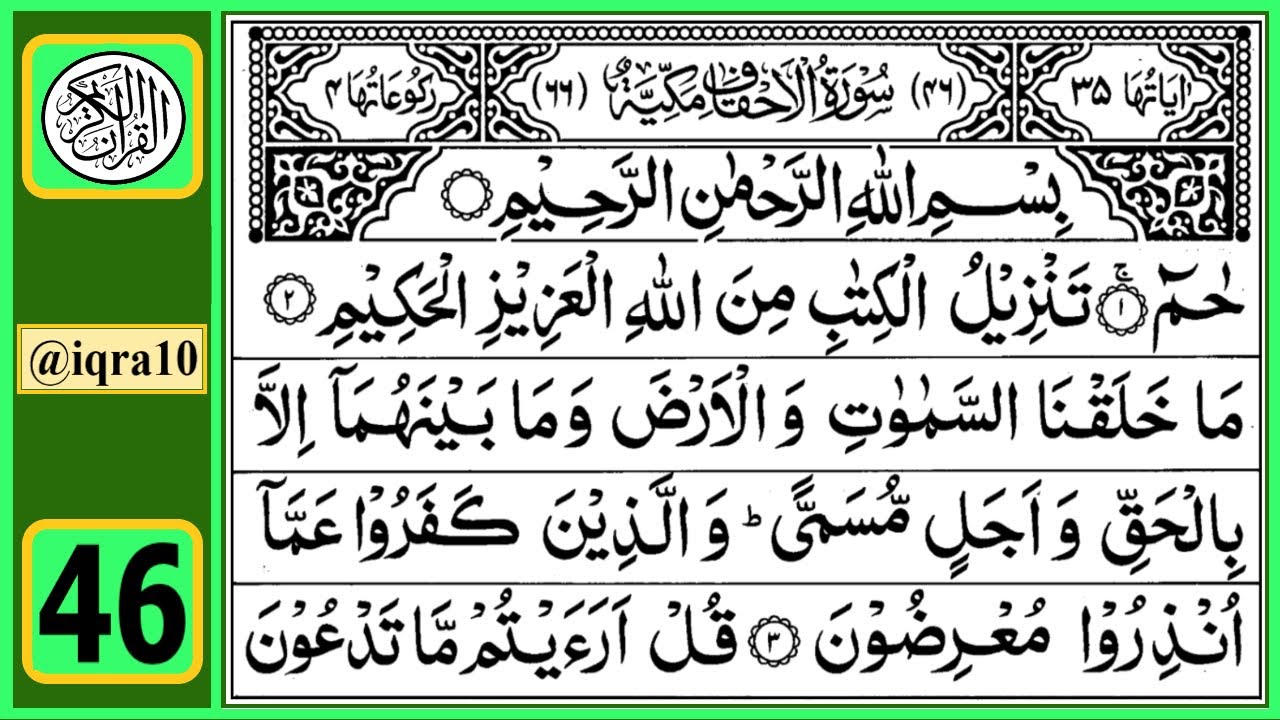 القرآن الكريم
@iqra10
46
اٰيَاتُهَا ۳۵ (۴۶) سُوْرَةُ الْاَحْقَافِ مَكِّيَّةٌ (۶۶) رُكُوْعَاتُهَا ۴
بِسْمِ اللّٰهِ الرَّحْمٰنِ الرَّحِيْمِ
حٰمٓ ۚ‏﴿۱﴾ تَنْزِيْلُ الْكِتٰبِ مِنَ اللّٰهِ الْعَزِيْزِ الْحَكِيْمِ ﴿۲﴾
مَا خَلَقْنَا السَّمٰوٰتِ وَالْاَرْضَ وَمَا بَيْنَهُمَاۤ اِلَّا
بِالْحَقِّ وَاَجَلٍ مُّسَمًّى ؕ وَالَّذِيْنَ كَفَرُوْا عَمَّاۤ
اُنْذِرُوْا مُعْرِضُوْنَ ﴿۳﴾ قُلْ اَرَءَيْتُمْ مَّا تَدْعُوْنَ